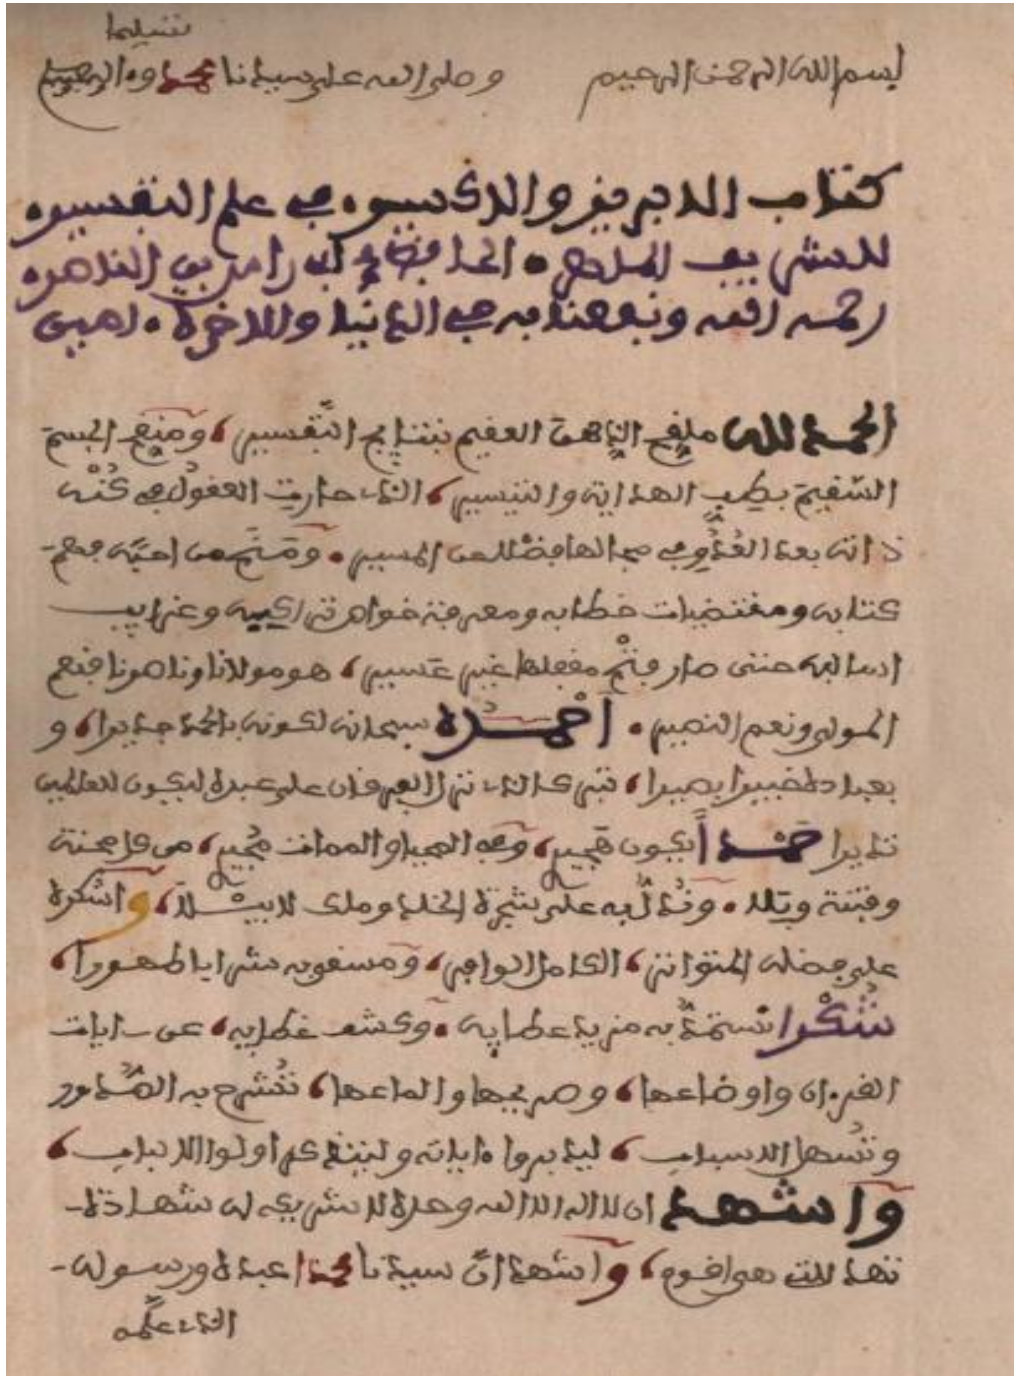 تسليما
بسم الله الرحمن الرحيم وصلى الله على سيدنا محمد وءاله وصحبه
كتاب الابريز والاكسير في علم التفسير
للشريف الحافظ
رحمه الله ونفعنا به في الدنيا والاخرة امين
الحمد لله ملقح الذهن العقيم بنتايج التفسير، ومنقح الجسم
السقيم بطب الهداية والتيسير، الذي حارت العقول في كنه
ذاته في مجالها للعن المسير. ومتع من احبه بفهم
كتابه ومقتضيات خطابه ومعرفة خواص تراكيبه وغرايب
اساليبه حتى صار فتح مقفلها غير عسير، هو مولانا وناصرنا فنعم
المولى ونعم النصير. أحمده سبحانه لكونه بالحمد جديرا، و
بعباده خبيرا بصيرا، تبرك الذي نزل الفرقان على عبده ليكون للعالمين
نذيرا حمدا يكون وفي المحيا والممات مجير، من كل محنة
وفتنة وبلا. وندل به على شجرة الخلد وملك لا يبلى، واشكره
على فضله المتواتر، الكامل الوافر، ومسقوبه شرابا طهورا،
شكرا نستمد به مزيد عطايه. وكشف غطايه، عن ايات
القرءان واوضاعها، وصريحها والماعها، تشرح به الصدور
وتسهل الاسباب، ليدبروا ءاياته وليتذكر اولوا الالباب،
واشهد ان لا اله الا الله وحده لا شريك له شهادة
تهد للتي هي اقوم، واشهد ان سيدنا محمدا عبده ورسوله
الذي علمه